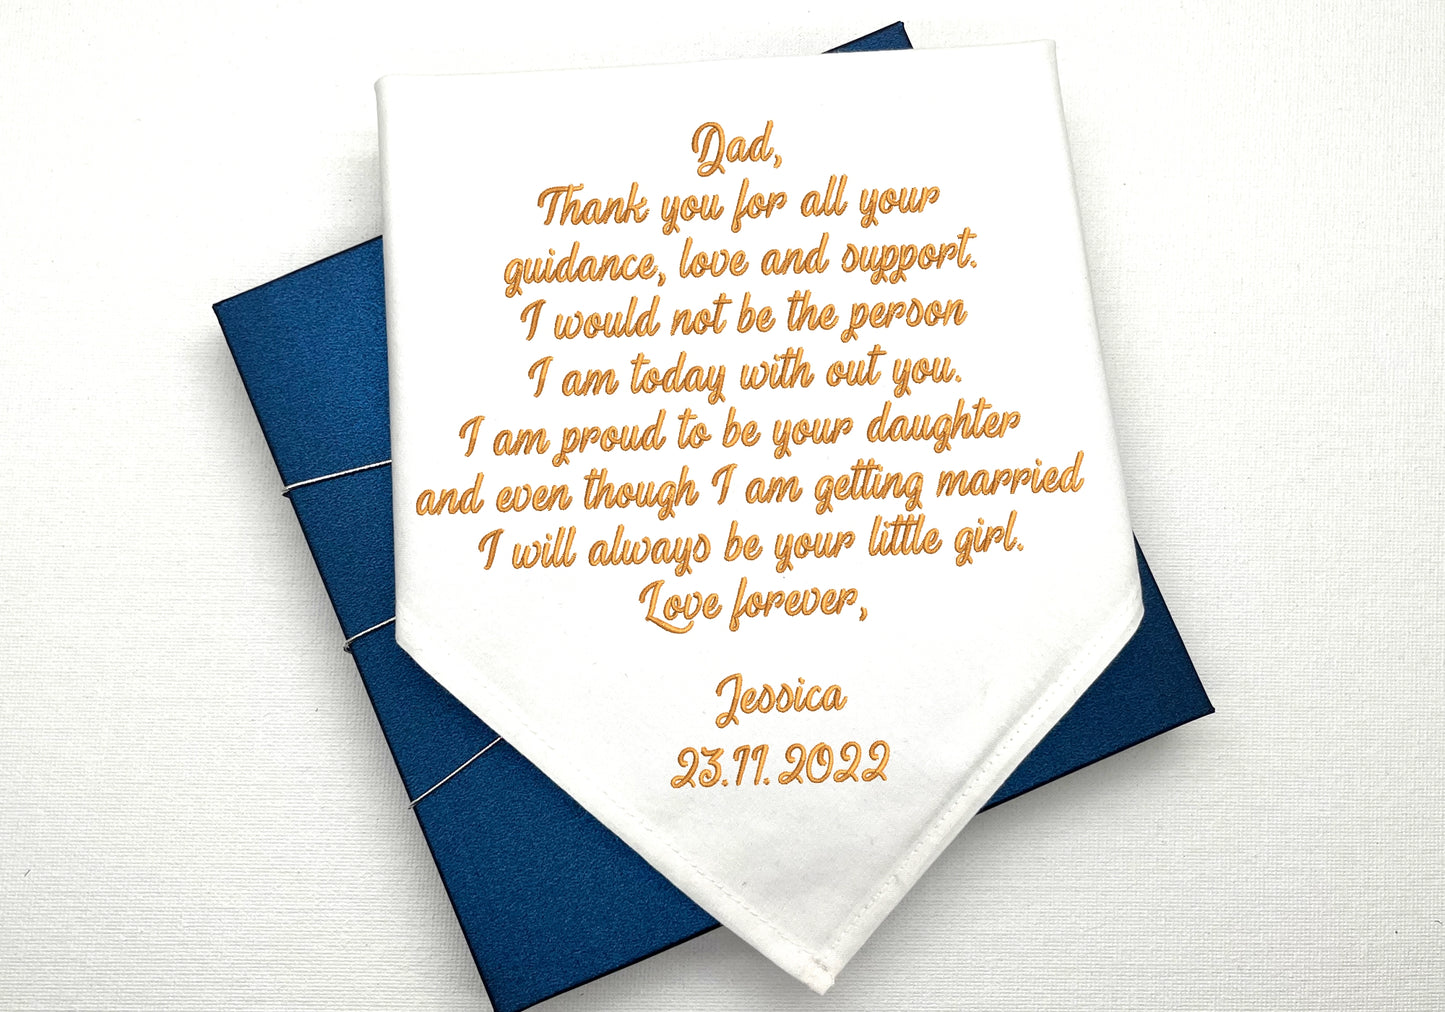 Dad,
Thank you for all your
guidance, love and support.
I would not be the person
I am today with out you.
I am proud to be your daughter
and even though I am getting married
I will always be your little girl.
Love forever,
Jessica
23.11.2022